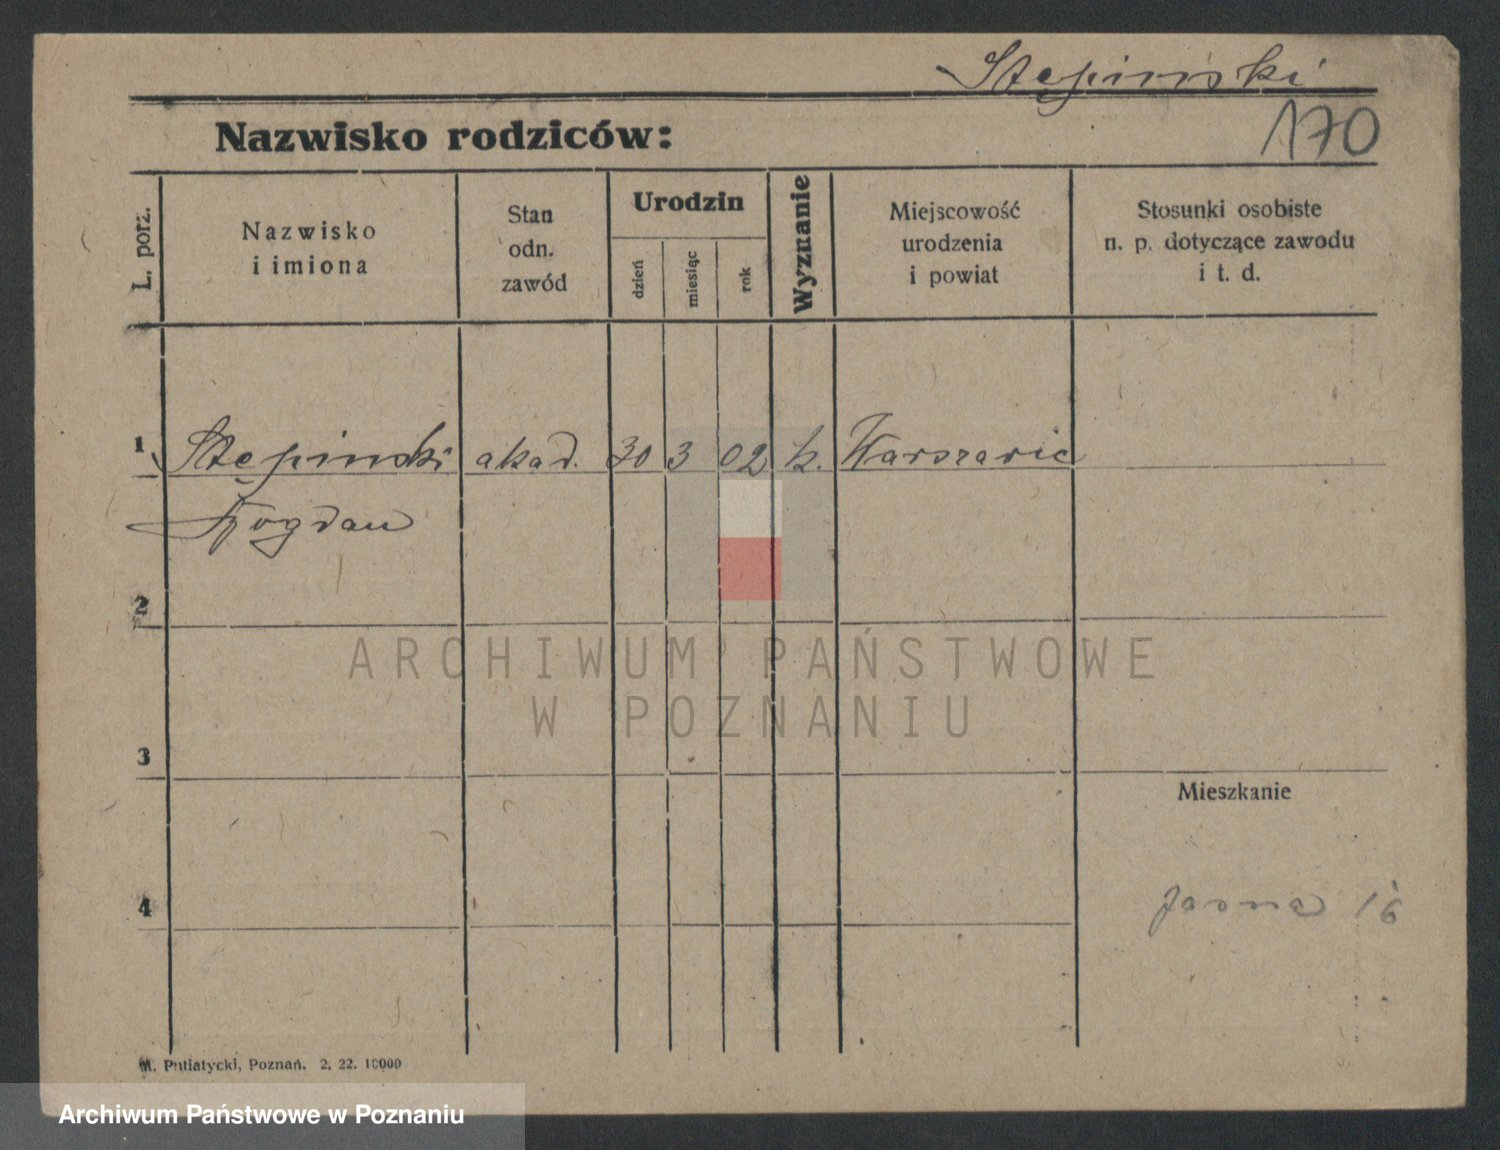 Stępiński
170
Nazwisko rodziców:
L. porz.
Nazwisko
i imiona
Stan
odn.
zawód
Urodzin
dzień
miesiąc
rok
Wyznanie
Miejscowość
urodzenia
i powiat
Stosunki osobiste
n. p. dotyczące zawodu
i t. d.
1 Stępinski akad. 30 3 02 k.
Bogdan
2
ARCHIWUM PAŃSTWOWE
W POZNANIU
3
Mieszkanie
4
Jasna 16
M. Putiatycki, Poznań. 2. 22. 10000
Archiwum Państwowe w Poznaniu